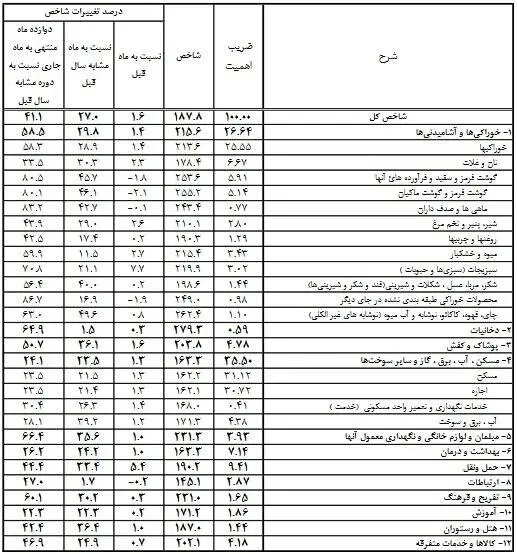 شرح	ضریب اهمیت	شاخص	درصد تغییرات شاخص
نسبت به ماه قبل	نسبت به ماه مشابه سال قبل	دوازده ماه منتهی به ماه جاری نسبت به دوره مشابه سال قبل
شاخص کل	۱۰۰.۰۰	۱۸۷.۸	۱.۶	۲۷.۰	۴۱.۱
۱- خوراکی‌ها و آشامیدنی‌ها	۲۶.۶۴	۲۱۵.۶	۱.۴	۲۹.۸	۵۸.۵
خوراکیها	۲۵.۵۵	۲۱۳.۶	۱.۴	۲۸.۹	۵۸.۳
نان و غلات	۶.۶۷	۱۷۸.۴	۲.۳	۳۰.۳	۳۳.۵
گوشت قرمز و سفید و فرآورده های آنها	۵.۹۱	۲۵۳.۶	-۱.۸	۴۵.۷	۸۰.۵
گوشت قرمز و گوشت ماکیان	۵.۱۴	۲۵۵.۲	-۲.۱	۴۶.۱	۸۰.۱
ماهی ها و صدف داران	۰.۷۷	۲۴۳.۴	-۰.۱	۴۲.۷	۸۳.۲
شیر، پنیر و تخم مرغ	۲.۸۰	۲۱۰.۱	۲.۶	۲۹.۰	۴۳.۹
روغنها و چربیها	۱.۲۹	۱۹۰.۳	۰.۲	۱۷.۴	۴۲.۵
میوه و خشکبار	۳.۴۳	۲۱۵.۴	۱۱.۵	۲.۷	۵۹.۹
سبزیجات (سبزی‌ها و حبوبات)	۳.۰۲	۲۱۹.۹	۷.۷	۲۱.۱	۷۰.۸
شکر، مربا، عسل، شکلات و شیرینی(قند و شکر و شیرینی‌ها)	۱.۴۴	۱۹۸.۶	۰.۲	۴۰.۰	۵۶.۴
محصولات خوراکی طبقه بندی نشده در جای دیگر	۰.۹۸	۲۴۹.۰	-۱.۹	۱۶.۹	۸۶.۷
چای، قهوه، کاکائو، نوشابه و آب میوه (نوشابه های غیر الکلی)	۱.۱۰	۲۶۲.۴	۰.۸	۴۹.۶	۶۳.۰
۲- دخانیات	۰.۵۹	۲۷۹.۳	۰.۳	۱.۵	۶۴.۹
۳- پوشاک و کفش	۴.۷۸	۲۰۳.۸	۱.۶	۳۶.۱	۵۰.۷
۴- مسکن، آب، برق، گاز و سایر سوخت‌ها	۳۵.۵۰	۱۶۳.۳	۱.۳	۲۳.۵	۲۴.۱
مسکن	۳۱.۱۲	۱۶۲.۲	۱.۳	۲۱.۵	۲۳.۵
اجاره	۳۰.۷۲	۱۶۲.۱	۱.۳	۲۱.۴	۲۳.۵
خدمات نگهداری و تعمیر واحد مسکونی (خدمت)	۰.۴۱	۱۶۸.۰	۱.۴	۲۶.۳	۳۰.۴
آب، برق و سوخت	۴.۳۸	۱۷۱.۳	۱.۲	۳۹.۲	۲۸.۱
۵- مبلمان و لوازم خانگی و نگهداری معمول آنها	۳.۹۳	۲۳۱.۳	۱.۰	۳۵.۶	۶۶.۴
۶- بهداشت و درمان	۷.۱۴	۱۶۳.۳	۱.۰	۲۴.۲	۲۶.۲
۷- حمل ونقل	۹.۴۱	۱۹۰.۲	۵.۴	۳۳.۴	۴۴.۴
۸- ارتباطات	۲.۸۷	۱۴۵.۱	-۰.۲	۱.۷	۲۷.۰
۹- تفریح و فرهنگ	۱.۶۵	۲۳۱.۰	۰.۳	۳۰.۲	۶۰.۱
۱۰- آموزش	۱.۸۶	۱۷۱.۲	۰.۲	۲۲.۳	۲۲.۳
۱۱- هتل و رستوران	۱.۴۴	۱۸۷.۰	۱.۰	۳۶.۴	۴۲.۴
۱۲- کالاها و خدمات متفرقه	۴.۱۸	۲۰۲.۱	۰.۷	۲۴.۹	۴۶.۹